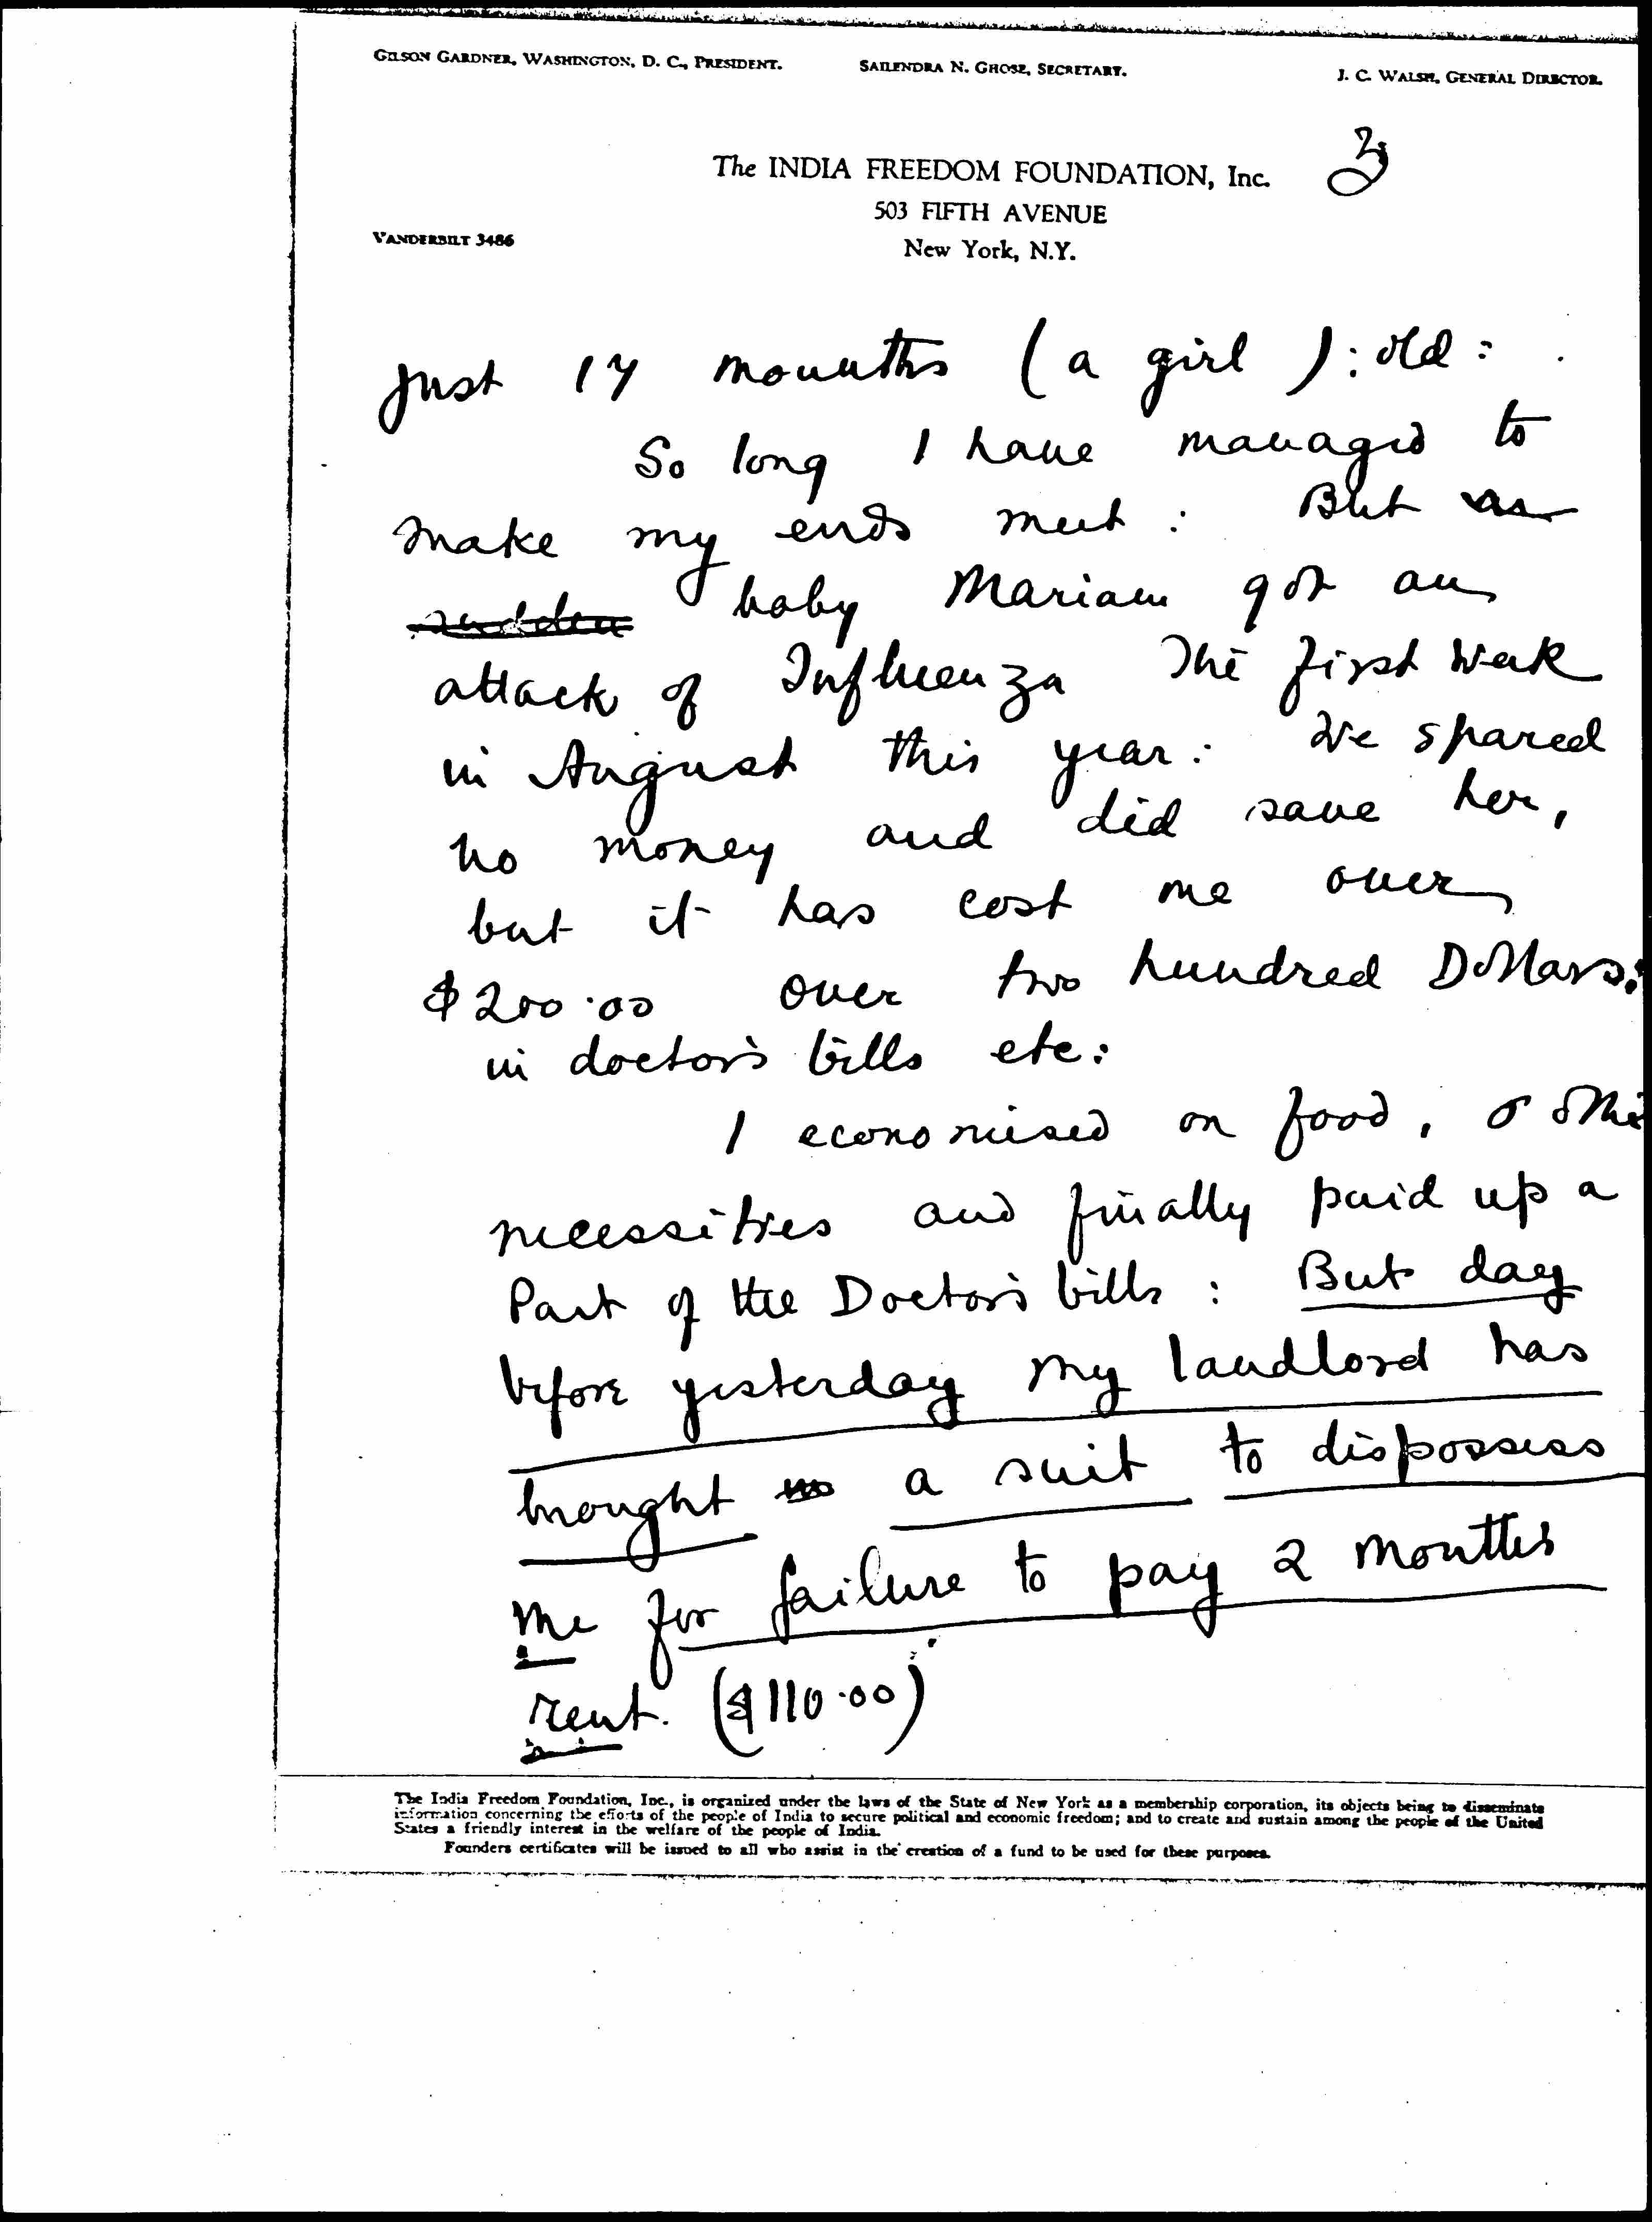 GILSON GARDNER, WASHINGTON, D. C., PRESIDENT. SAILENDRA N. GHOSE, SECRETARY. J. C. WALSH, GENERAL DIRECTOR.
The INDIA FREEDOM FOUNDATION, Inc.
503 FIFTH AVENUE
VANDERBILT 3486 New York, N.Y.
just 17 mounths (a girl ): old :
So long I have managed to
make my ends meet : But as
sudden baby Mariam got an
attack of Influenza The first week
in August this year : We spared
no money and did save her,
but it has cost me over
$200.00 over two hundred Dollars:
in doctor's bills etc:
I economised on food, othe
necessities and finally paid up a
Part of the Doctor's bills : But day
before yesterday my landlord has
brought a suit to dispossess
me for failure to pay 2 months
rent. ($110.00)
The India Freedom Foundation, Inc., is organized under the laws of the State of New York as a membership corporation, its objects being to disseminate
information concerning the efforts of the people of India to secure political and economic freedom; and to create and sustain among the people of the United
States a friendly interest in the welfare of the people of India.
Founders certificates will be issued to all who assist in the creation of a fund to be used for these purposes.